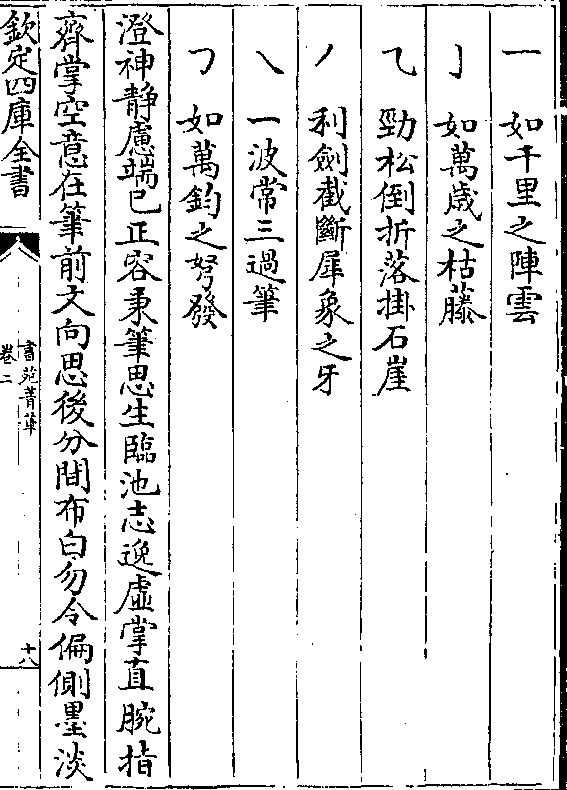 一　如千里之陣雲
亅　如萬歳之枯藤
乁　勁松倒折落掛石崖
丿　利劍截斷犀象之牙
乀　一波常三過筆
㇆　如萬鈞之弩發
澄神静慮端已正容秉筆思生臨池志逸虛掌直腕指
齊掌空意在筆前文向思後分間布白勿令偏側墨淡
欽定四庫全書
書苑菁華
卷二
十八